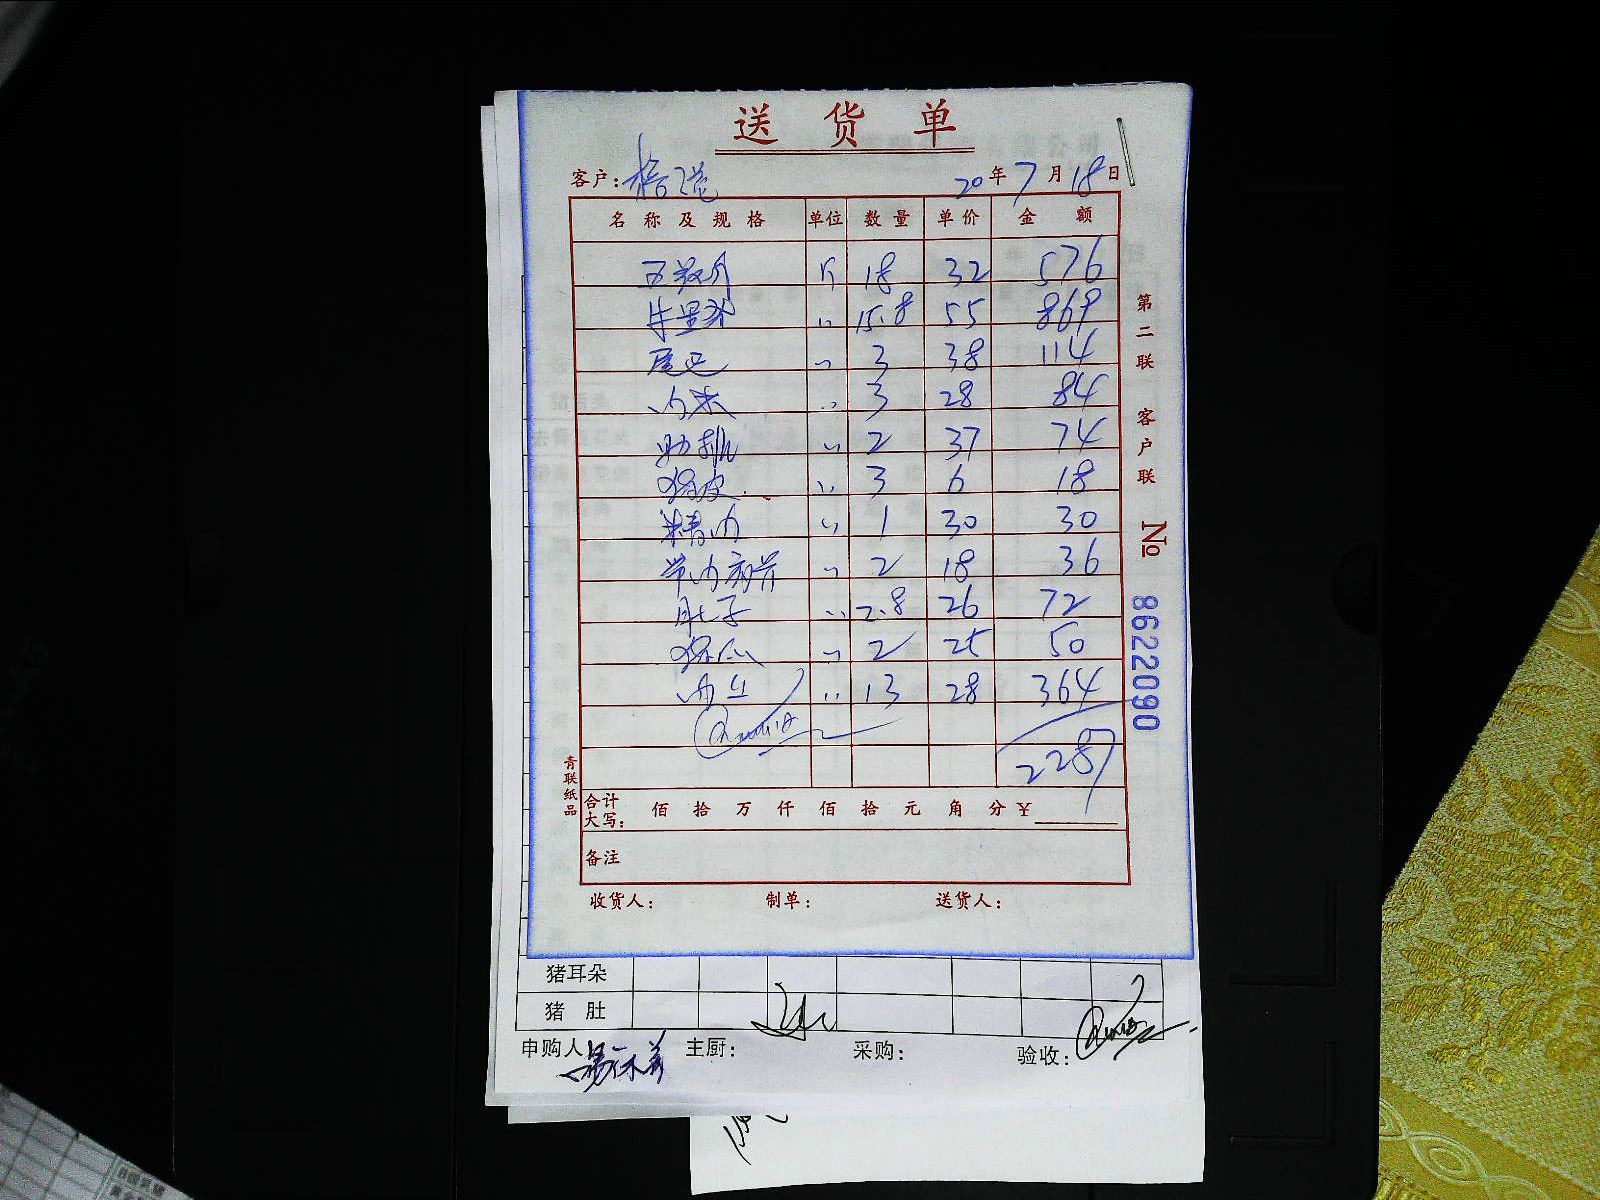 送货单
客户: 20年7月18日
名称及规格 单位 数量 单价 金额
五花肉 斤 18 32 576
牛里脊 〃 15.8 55 869
尾巴 〃 3 38 114
肉末 〃 3 28 84
肋排 〃 2 37 74
猪皮 〃 3 6 18
精肉 〃 1 30 30
带肉扇骨 〃 2 18 36
肚子 〃 2.8 26 72
猪爪 〃 2 25 50
肉丝 〃 13 28 364
2287
合计大写: 佰 拾 万 仟 佰 拾 元 角 分 ¥
备注
收货人: 制单: 送货人:
第二联 客户联 № 8622090
青联纸品
猪耳朵
猪肚
申购人 主厨: 采购: 验收: